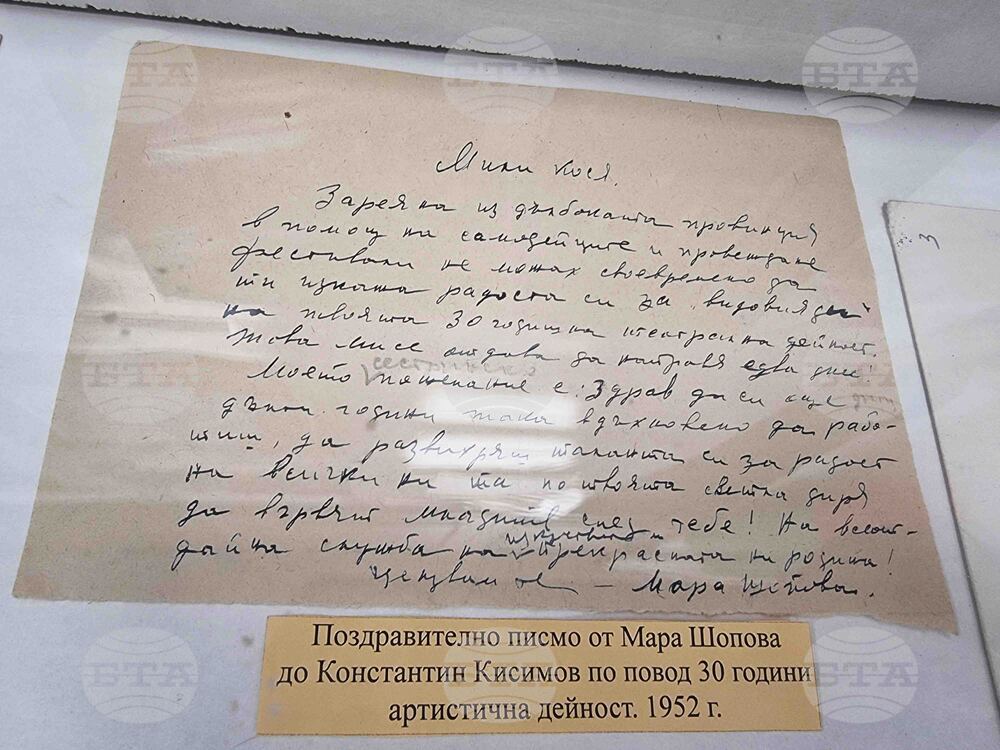 Мили Кося.
Зареяна из дълбоката провинция
в помощ на самодейците и провеждане
фестивали не можах своевременно да
ти изкажа радостта си за видовия ден
на твоята 30 годишна театрална дейност.
Това ми се отдава да направя едва днес!
Моето сестринско пожелание е: Здрав да си още
дълги години така вдъхновено да рабо-
тиш, да развихряш таланта си за радост
на всички ни та по твоята светла диря
да вървят младите след тебе! На всеот-
дайна служба на изкуството и прекрасната ни родина!
Целувам те – Мара Шопова.
Поздравително писмо от Мара Шопова
до Константин Кисимов по повод 30 години
артистична дейност. 1952 г.
3
БТА